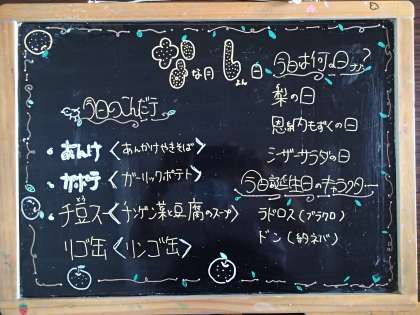 な月 よん日
今日のこんだて
あんけ〈あんかけやきそば〉
ガポテ〈ガーリックポテト〉
チ豆スー〈チンゲン菜と豆腐のスープ〉
リゴ缶〈リンゴ缶〉
今日は何の日?
梨の日
恩納もずくの日
シーザーサラダの日
今日誕生日のキャラクター
ラドロス(ブラクロ)
ドン(約ネバ)